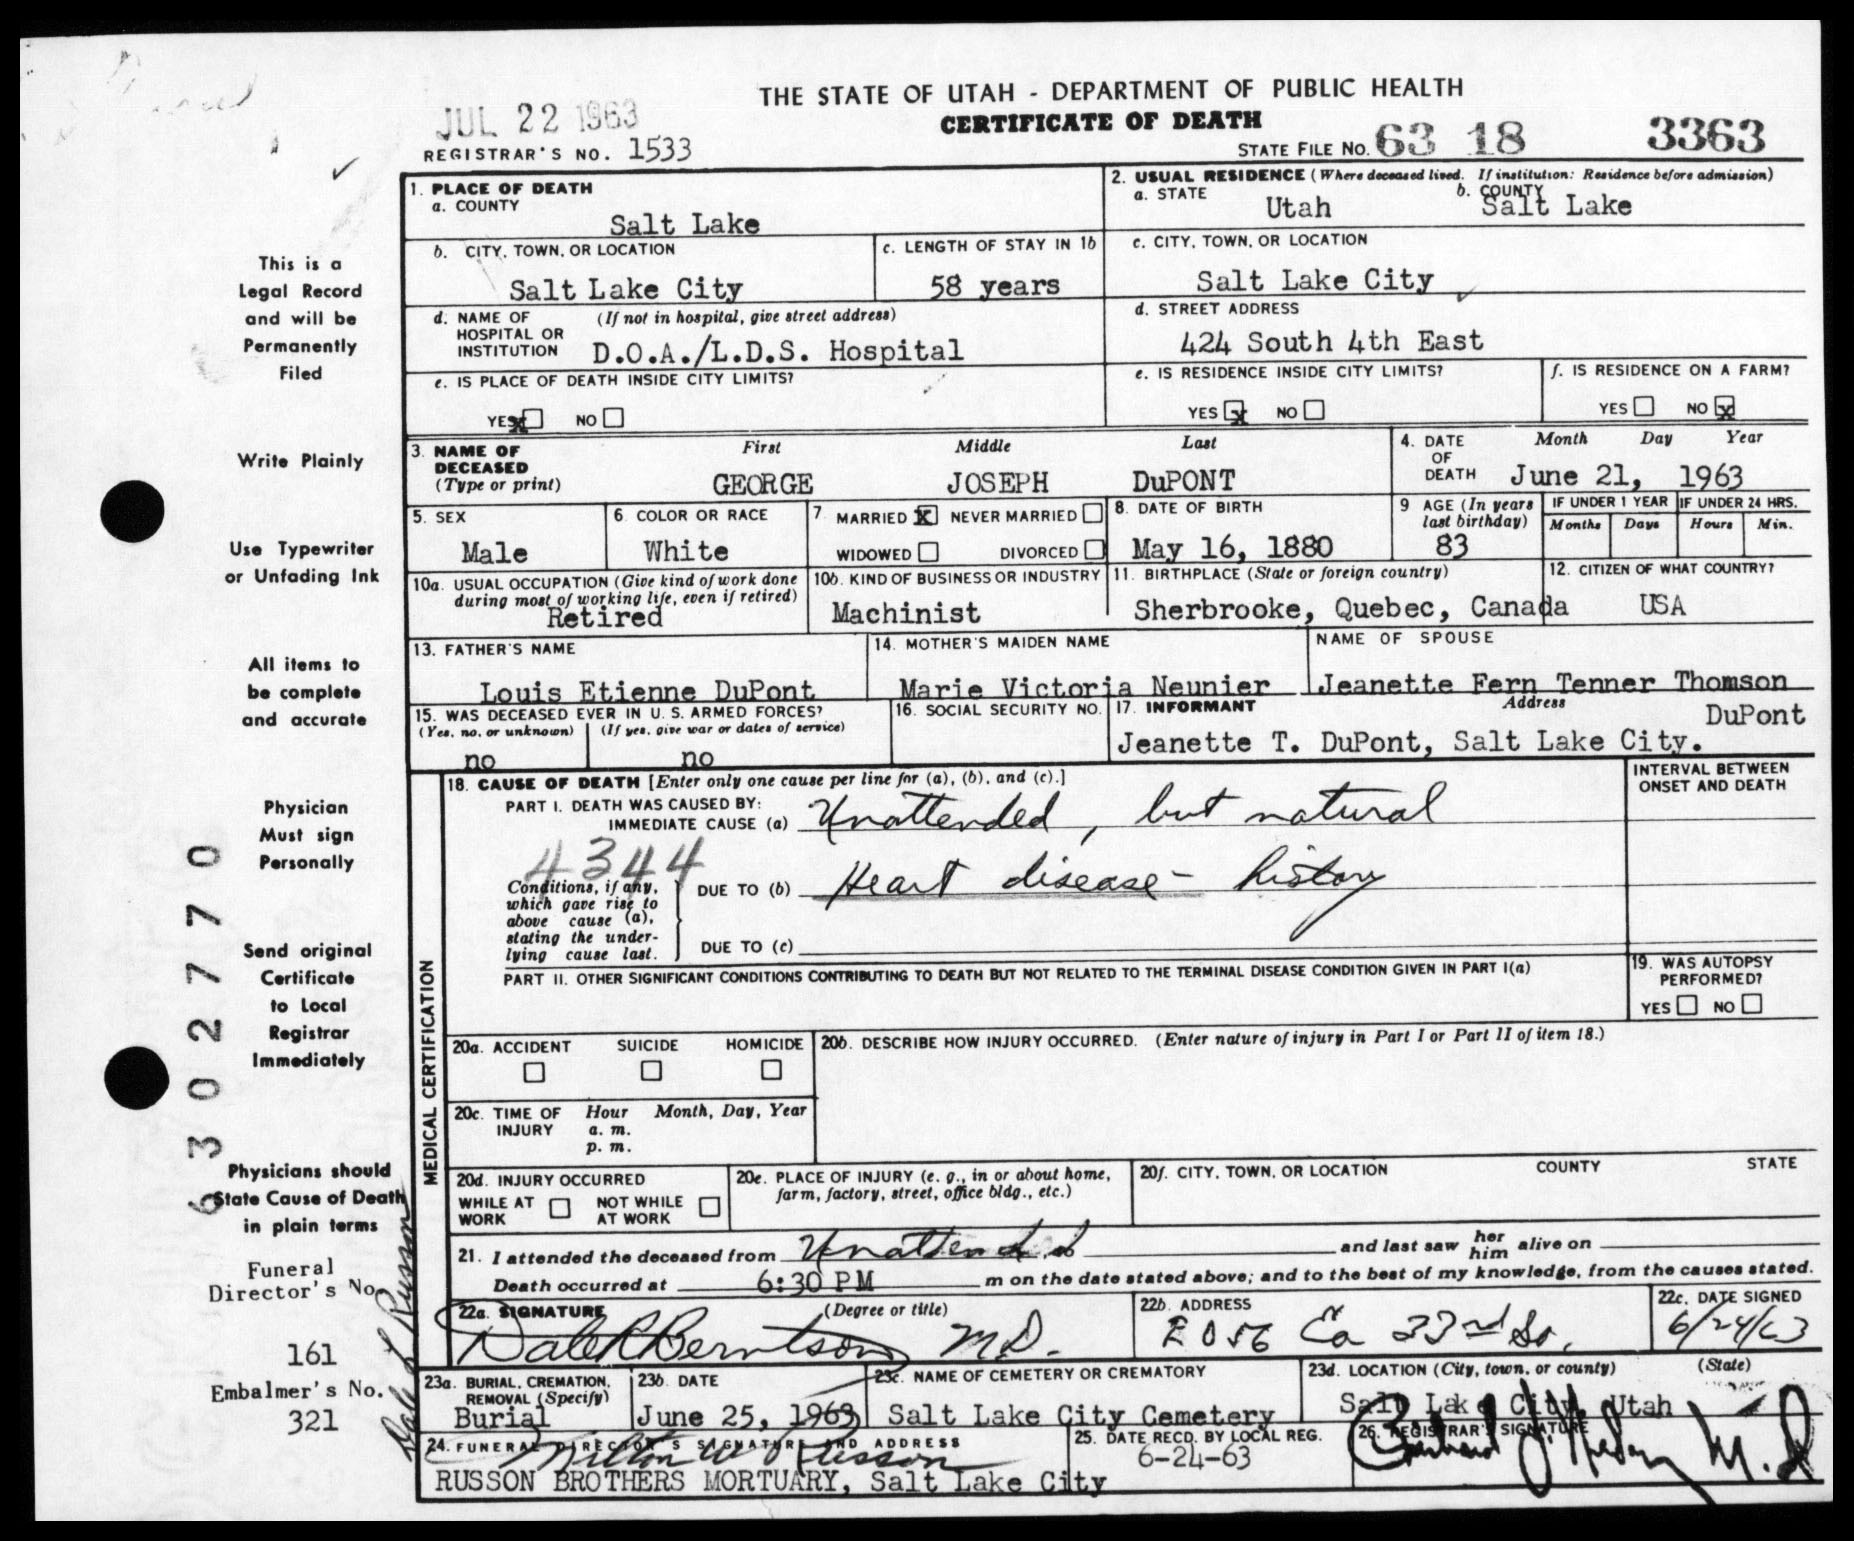 THE STATE OF UTAH - DEPARTMENT OF PUBLIC HEALTH
JUL 22 1963
CERTIFICATE OF DEATH
REGISTRAR'S NO. 1533
STATE FILE NO. 63 18 3363
1. PLACE OF DEATH
a. COUNTY
Salt Lake
2. USUAL RESIDENCE (Where deceased lived. If institution: Residence before admission)
a. STATE Utah b. COUNTY Salt Lake
b. CITY, TOWN, OR LOCATION
Salt Lake City
c. LENGTH OF STAY IN 1b
58 years
c. CITY, TOWN, OR LOCATION
Salt Lake City
d. NAME OF HOSPITAL OR INSTITUTION (If not in hospital, give street address)
D.O.A./L.D.S. Hospital
d. STREET ADDRESS
424 South 4th East
e. IS PLACE OF DEATH INSIDE CITY LIMITS?
YES x NO
e. IS RESIDENCE INSIDE CITY LIMITS?
YES x NO
f. IS RESIDENCE ON A FARM?
YES NO x
3. NAME OF DECEASED (Type or print)
First Middle Last
GEORGE JOSEPH DuPONT
4. DATE OF DEATH Month Day Year
June 21, 1963
5. SEX
Male
6. COLOR OR RACE
White
7. MARRIED X NEVER MARRIED
WIDOWED DIVORCED
8. DATE OF BIRTH
May 16, 1880
9 AGE (In years last birthday)
83
IF UNDER 1 YEAR
Months Days
IF UNDER 24 HRS.
Hours Min.
10a. USUAL OCCUPATION (Give kind of work done during most of working life, even if retired)
Retired
10b. KIND OF BUSINESS OR INDUSTRY
Machinist
11. BIRTHPLACE (State or foreign country)
Sherbrooke, Quebec, Canada
12. CITIZEN OF WHAT COUNTRY?
USA
13. FATHER'S NAME
Louis Etienne DuPont
14. MOTHER'S MAIDEN NAME
Marie Victoria Neunier
NAME OF SPOUSE
Jeanette Fern Tenner Thomson
DuPont
15. WAS DECEASED EVER IN U. S. ARMED FORCES?
(Yes, no, or unknown) (If yes, give war or dates of service)
no no
16. SOCIAL SECURITY NO.
17. INFORMANT Address
Jeanette T. DuPont, Salt Lake City.
18. CAUSE OF DEATH [Enter only one cause per line for (a), (b), and (c).]
INTERVAL BETWEEN ONSET AND DEATH
PART I. DEATH WAS CAUSED BY:
IMMEDIATE CAUSE (a) Unattended, but natural
4344
Conditions, if any, which gave rise to above cause (a), stating the underlying cause last.
DUE TO (b) Heart disease - history
DUE TO (c)
PART II. OTHER SIGNIFICANT CONDITIONS CONTRIBUTING TO DEATH BUT NOT RELATED TO THE TERMINAL DISEASE CONDITION GIVEN IN PART I(a)
19. WAS AUTOPSY PERFORMED?
YES NO
MEDICAL CERTIFICATION
20a. ACCIDENT SUICIDE HOMICIDE
20b. DESCRIBE HOW INJURY OCCURRED. (Enter nature of injury in Part I or Part II of item 18.)
20c. TIME OF INJURY Hour Month, Day, Year
a. m.
p. m.
20d. INJURY OCCURRED
WHILE AT WORK NOT WHILE AT WORK
20e. PLACE OF INJURY (e. g., in or about home, farm, factory, street, office bldg., etc.)
20f. CITY, TOWN, OR LOCATION COUNTY STATE
21. I attended the deceased from Unattended and last saw her him alive on
Death occurred at 6:30 PM m on the date stated above; and to the best of my knowledge, from the causes stated.
22a. SIGNATURE (Degree or title)
Dale R Berntson M.D.
22b. ADDRESS
2056 Ea 33rd So.
22c. DATE SIGNED
6/24/63
23a. BURIAL, CREMATION, REMOVAL (Specify)
Burial
23b. DATE
June 25, 1963
23c. NAME OF CEMETERY OR CREMATORY
Salt Lake City Cemetery
23d. LOCATION (City, town, or county) (State)
Salt Lake City Utah
24. FUNERAL DIRECTOR'S SIGNATURE AND ADDRESS
Milton W Russon
RUSSON BROTHERS MORTUARY, Salt Lake City
25. DATE RECD. BY LOCAL REG.
6-24-63
26. REGISTRAR'S SIGNATURE
M.D
This is a
Legal Record
and will be
Permanently
Filed
Write Plainly
Use Typewriter
or Unfading Ink
All items to
be complete
and accurate
Physician
Must sign
Personally
Send original
Certificate
to Local
Registrar
Immediately
Physicians should
State Cause of Death
in plain terms
Funeral
Director's No.
161
Embalmer's No.
321
6302770
Russon